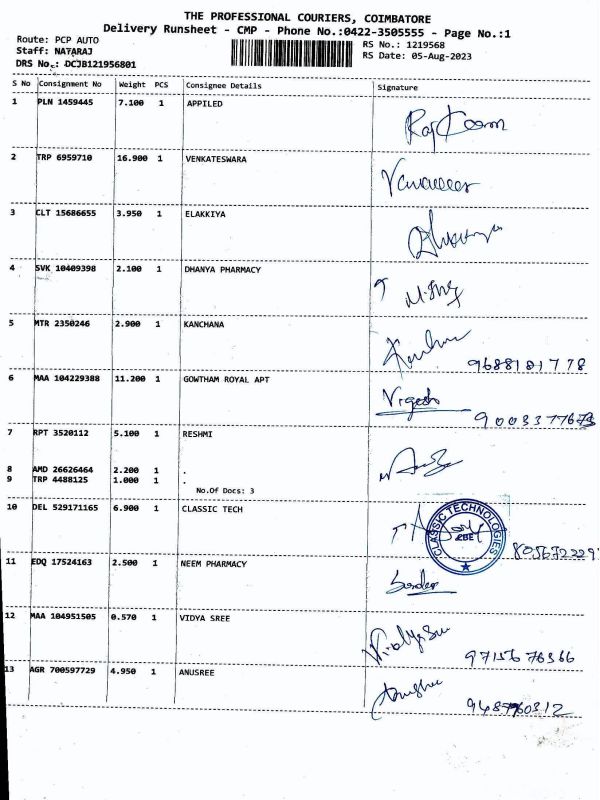 THE PROFESSIONAL COURIERS, COIMBATORE
Delivery Runsheet - CMP - Phone No.:0422-3505555 - Page No.:1
Route: PCP AUTO
Staff: NATARAJ
DRS No.: DCJB121956801
RS No.: 1219568
RS Date: 05-Aug-2023
S No Consignment No Weight PCS Consignee Details Signature
1 PLN 1459445 7.100 1 APPILED
2 TRP 6959710 16.900 1 VENKATESWARA
3 CLT 15686655 3.950 1 ELAKKIYA
4 SVK 10409398 2.100 1 DHANYA PHARMACY
5 MTR 2350246 2.900 1 KANCHANA
9688181778
6 MAA 104229388 11.200 1 GOWTHAM ROYAL APT
7 RPT 3520112 5.100 1 RESHMI
8 AMD 26626464 2.200 1 .
9 TRP 4488125 1.000 1 .
No.Of Docs: 3
10 DEL 529171165 6.900 1 CLASSIC TECH
CLASSIC TECHNOLOGIES
CBE
11 EDQ 17524163 2.500 1 NEEM PHARMACY
12 MAA 104951505 0.570 1 VIDYA SREE
13 AGR 700597729 4.950 1 ANUSREE